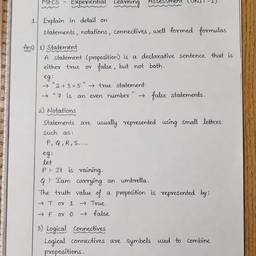 MFCS - Experiential Learning Assessment (UNIT-1)
1. Explain in detail on
statements, notations, connectives, well formed formulas
Ans) 1) Statement
A statement (proposition) is a declarative sentence that is
either true or false, but not both.
eg:
→ "2+3=5" → true statement
→ "7 is an even number" → false statements.
2) Notations
Statements are usually represented using small letters
such as:
P, Q, R, S.....
eg:
let
P: It is raining.
Q: I am carrying an umbrella.
The truth value of a proposition is represented by:
→ T or 1 → True
→ F or 0 → false
3) Logical Connectives
Logical connectives are symbols used to combine
propositions.